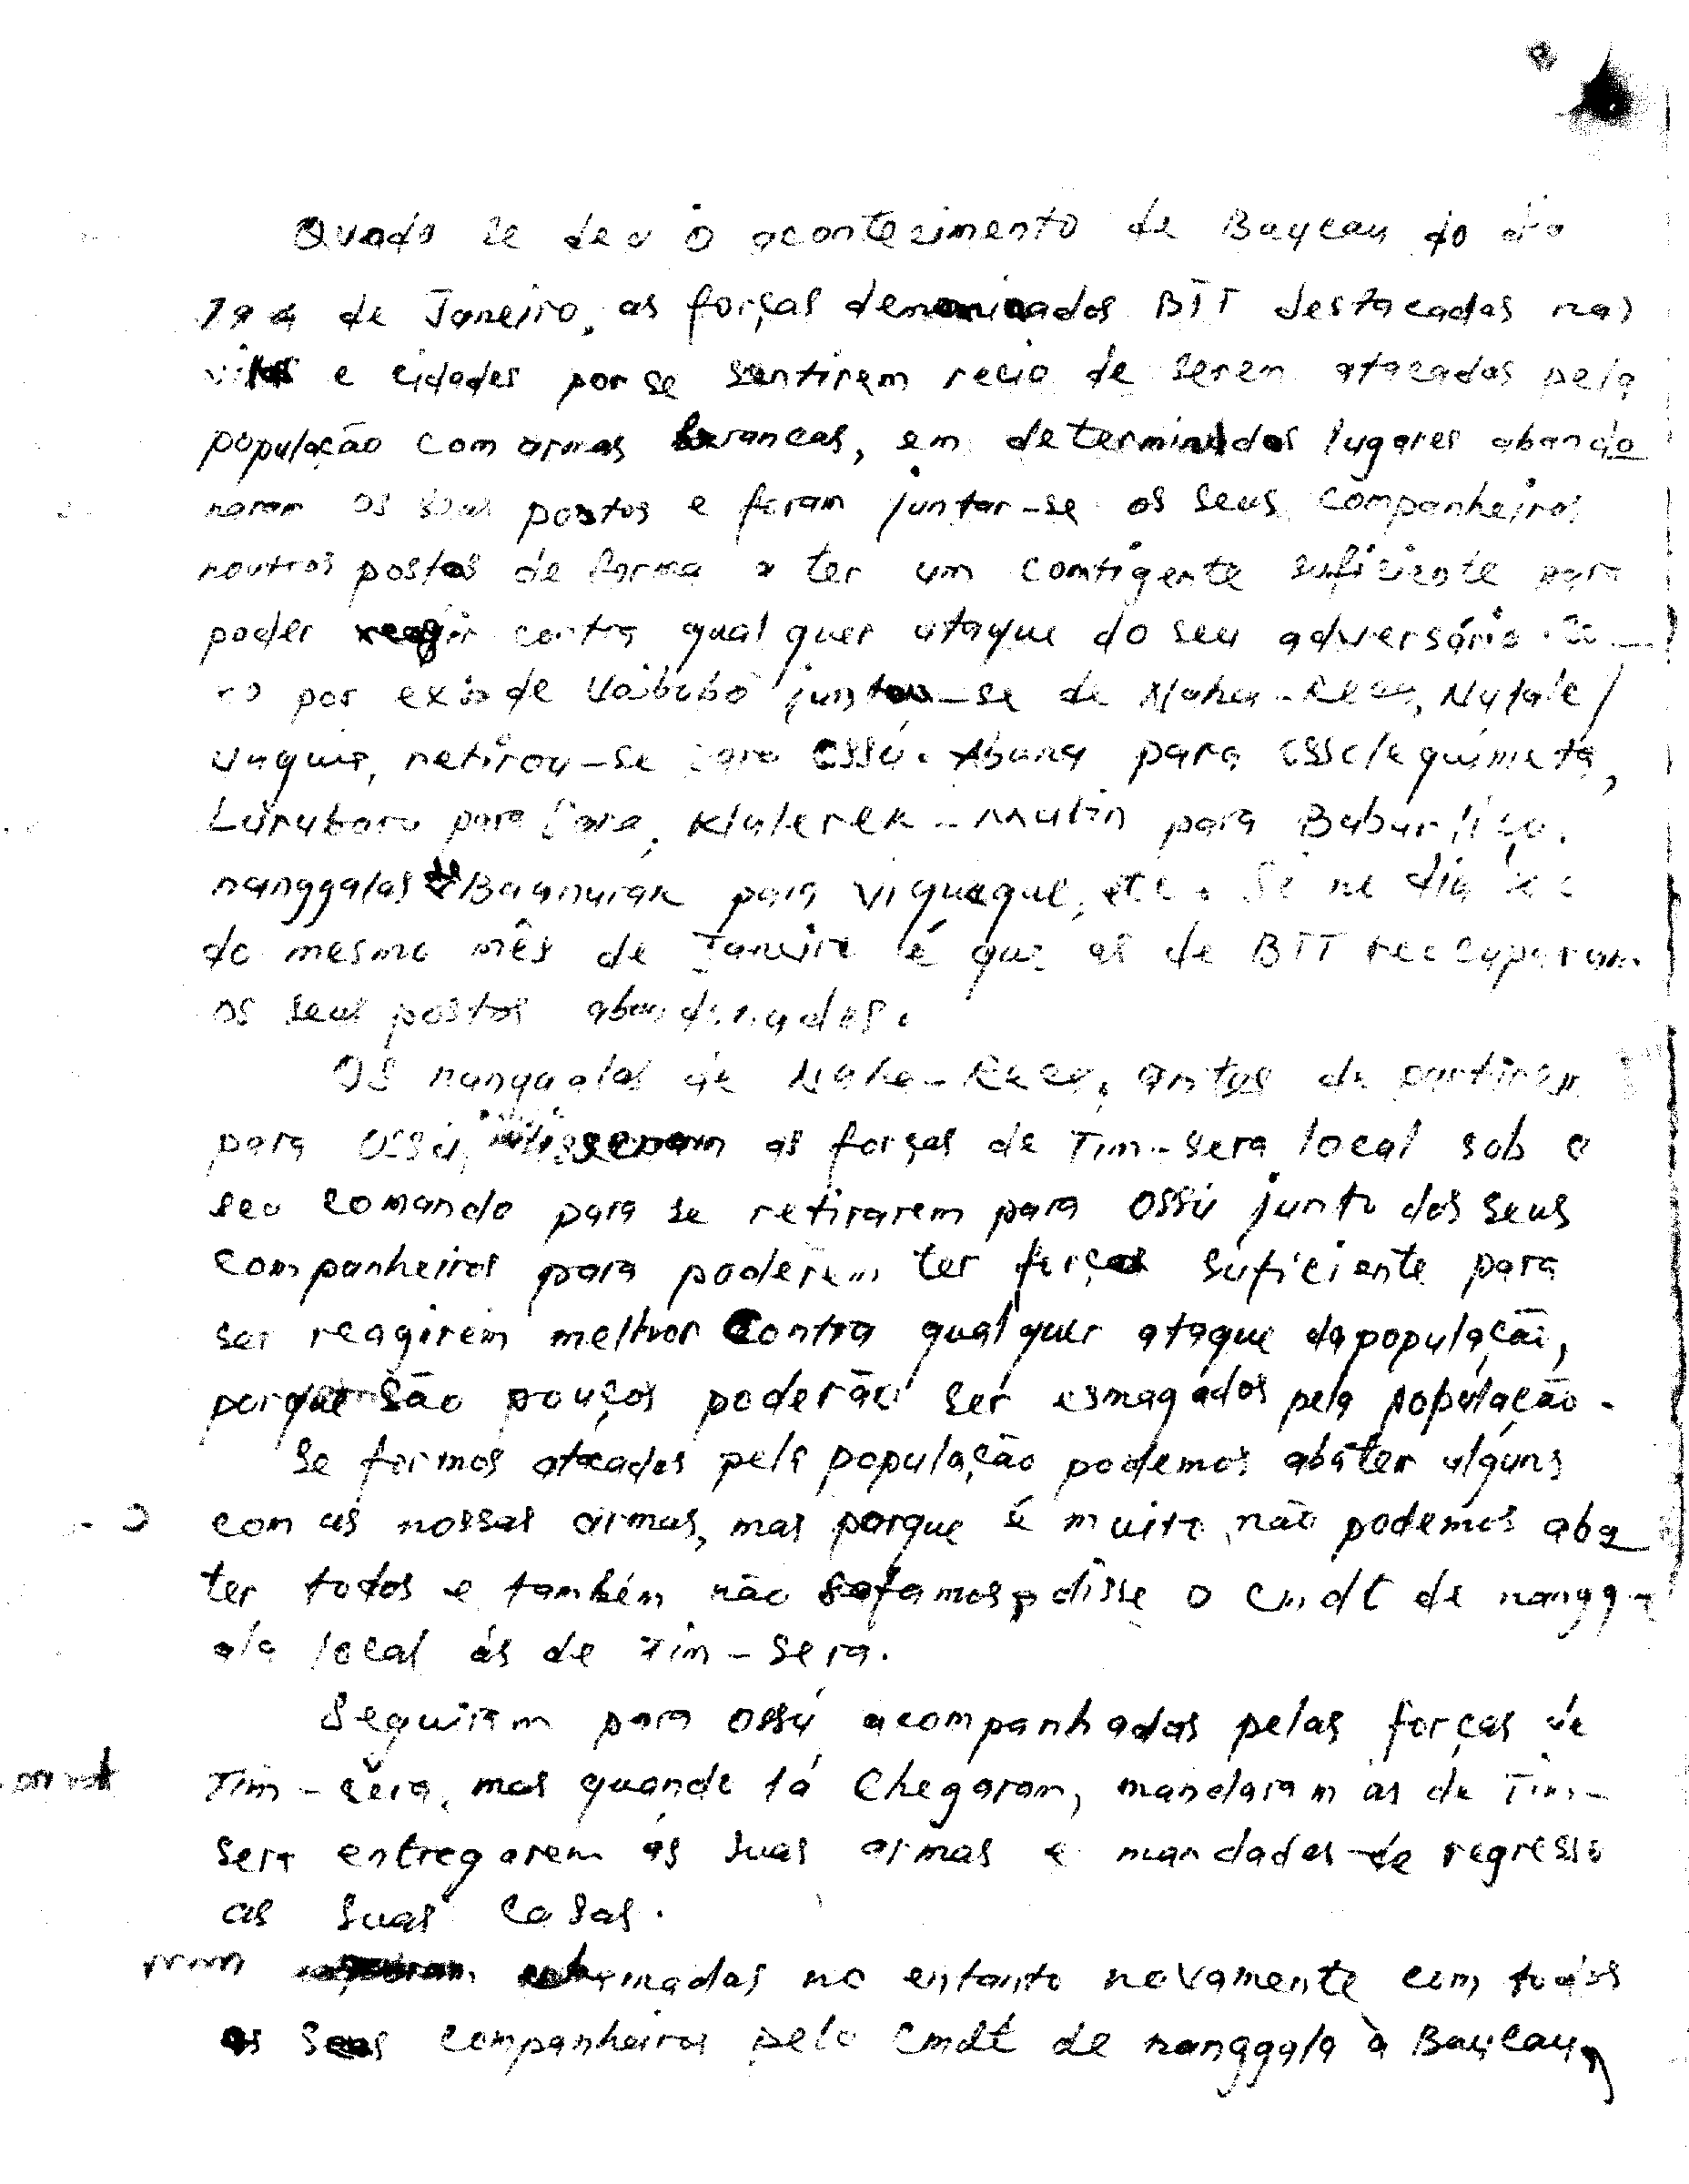 Quado se deu o acontesimento de Baucau do dia
de Janeiro, as forças denominados BTT destacadas nas
vilas e cidades por se sentirem recio de serem atacados pela
população com armas brancas, em determinados lugares abando
naram os seus postos e foram juntar-se os seus companheiros
noutros postos de forma a ter um contigente suficiente para
poder reagir contra qual quer ataque do seu adversário. Co-
mo por ex: o de Uaibobo juntou-se de Naha-Reca,
retirou-se para Ossú. Abuna para
para Lare, Klalerek-Mutin para
nanggalas de Buanurak para Viqueque, etc. Só no dia
do mesmo mês de Janeiro é que as de BTT reocuparam
os seus postos abandonados.
Os nanggalas de Naha-Reca, antes de partirem
para Ossú, disseram as forças de Tim-Sera local sob o
seu comando para se retirarem para Ossú junto dos seus
companheiros para poderem ter forças suficiente para
ser reagirem melhor contra qual quer ataque da população,
porque são pouços poderão ser esmagados pela população.
Se formos atacados pela população podemos abater alguns
com as nossas armas, mas porque é muito não podemos aba
ter todos e também não safamos, disse o Cmdt de nangg
ala local ás de Tim-Sera.
Seguiram para Ossú acompanhados pelas forças de
Tim-Sera, mas quando lá chegaram, mandaram as de Tim-
Sera entregarem as suas armas e mandados de regresso
as suas casas.
no entanto novamente com todos
os seus companheiros pelo Cmdt de nanggala à Baucau,